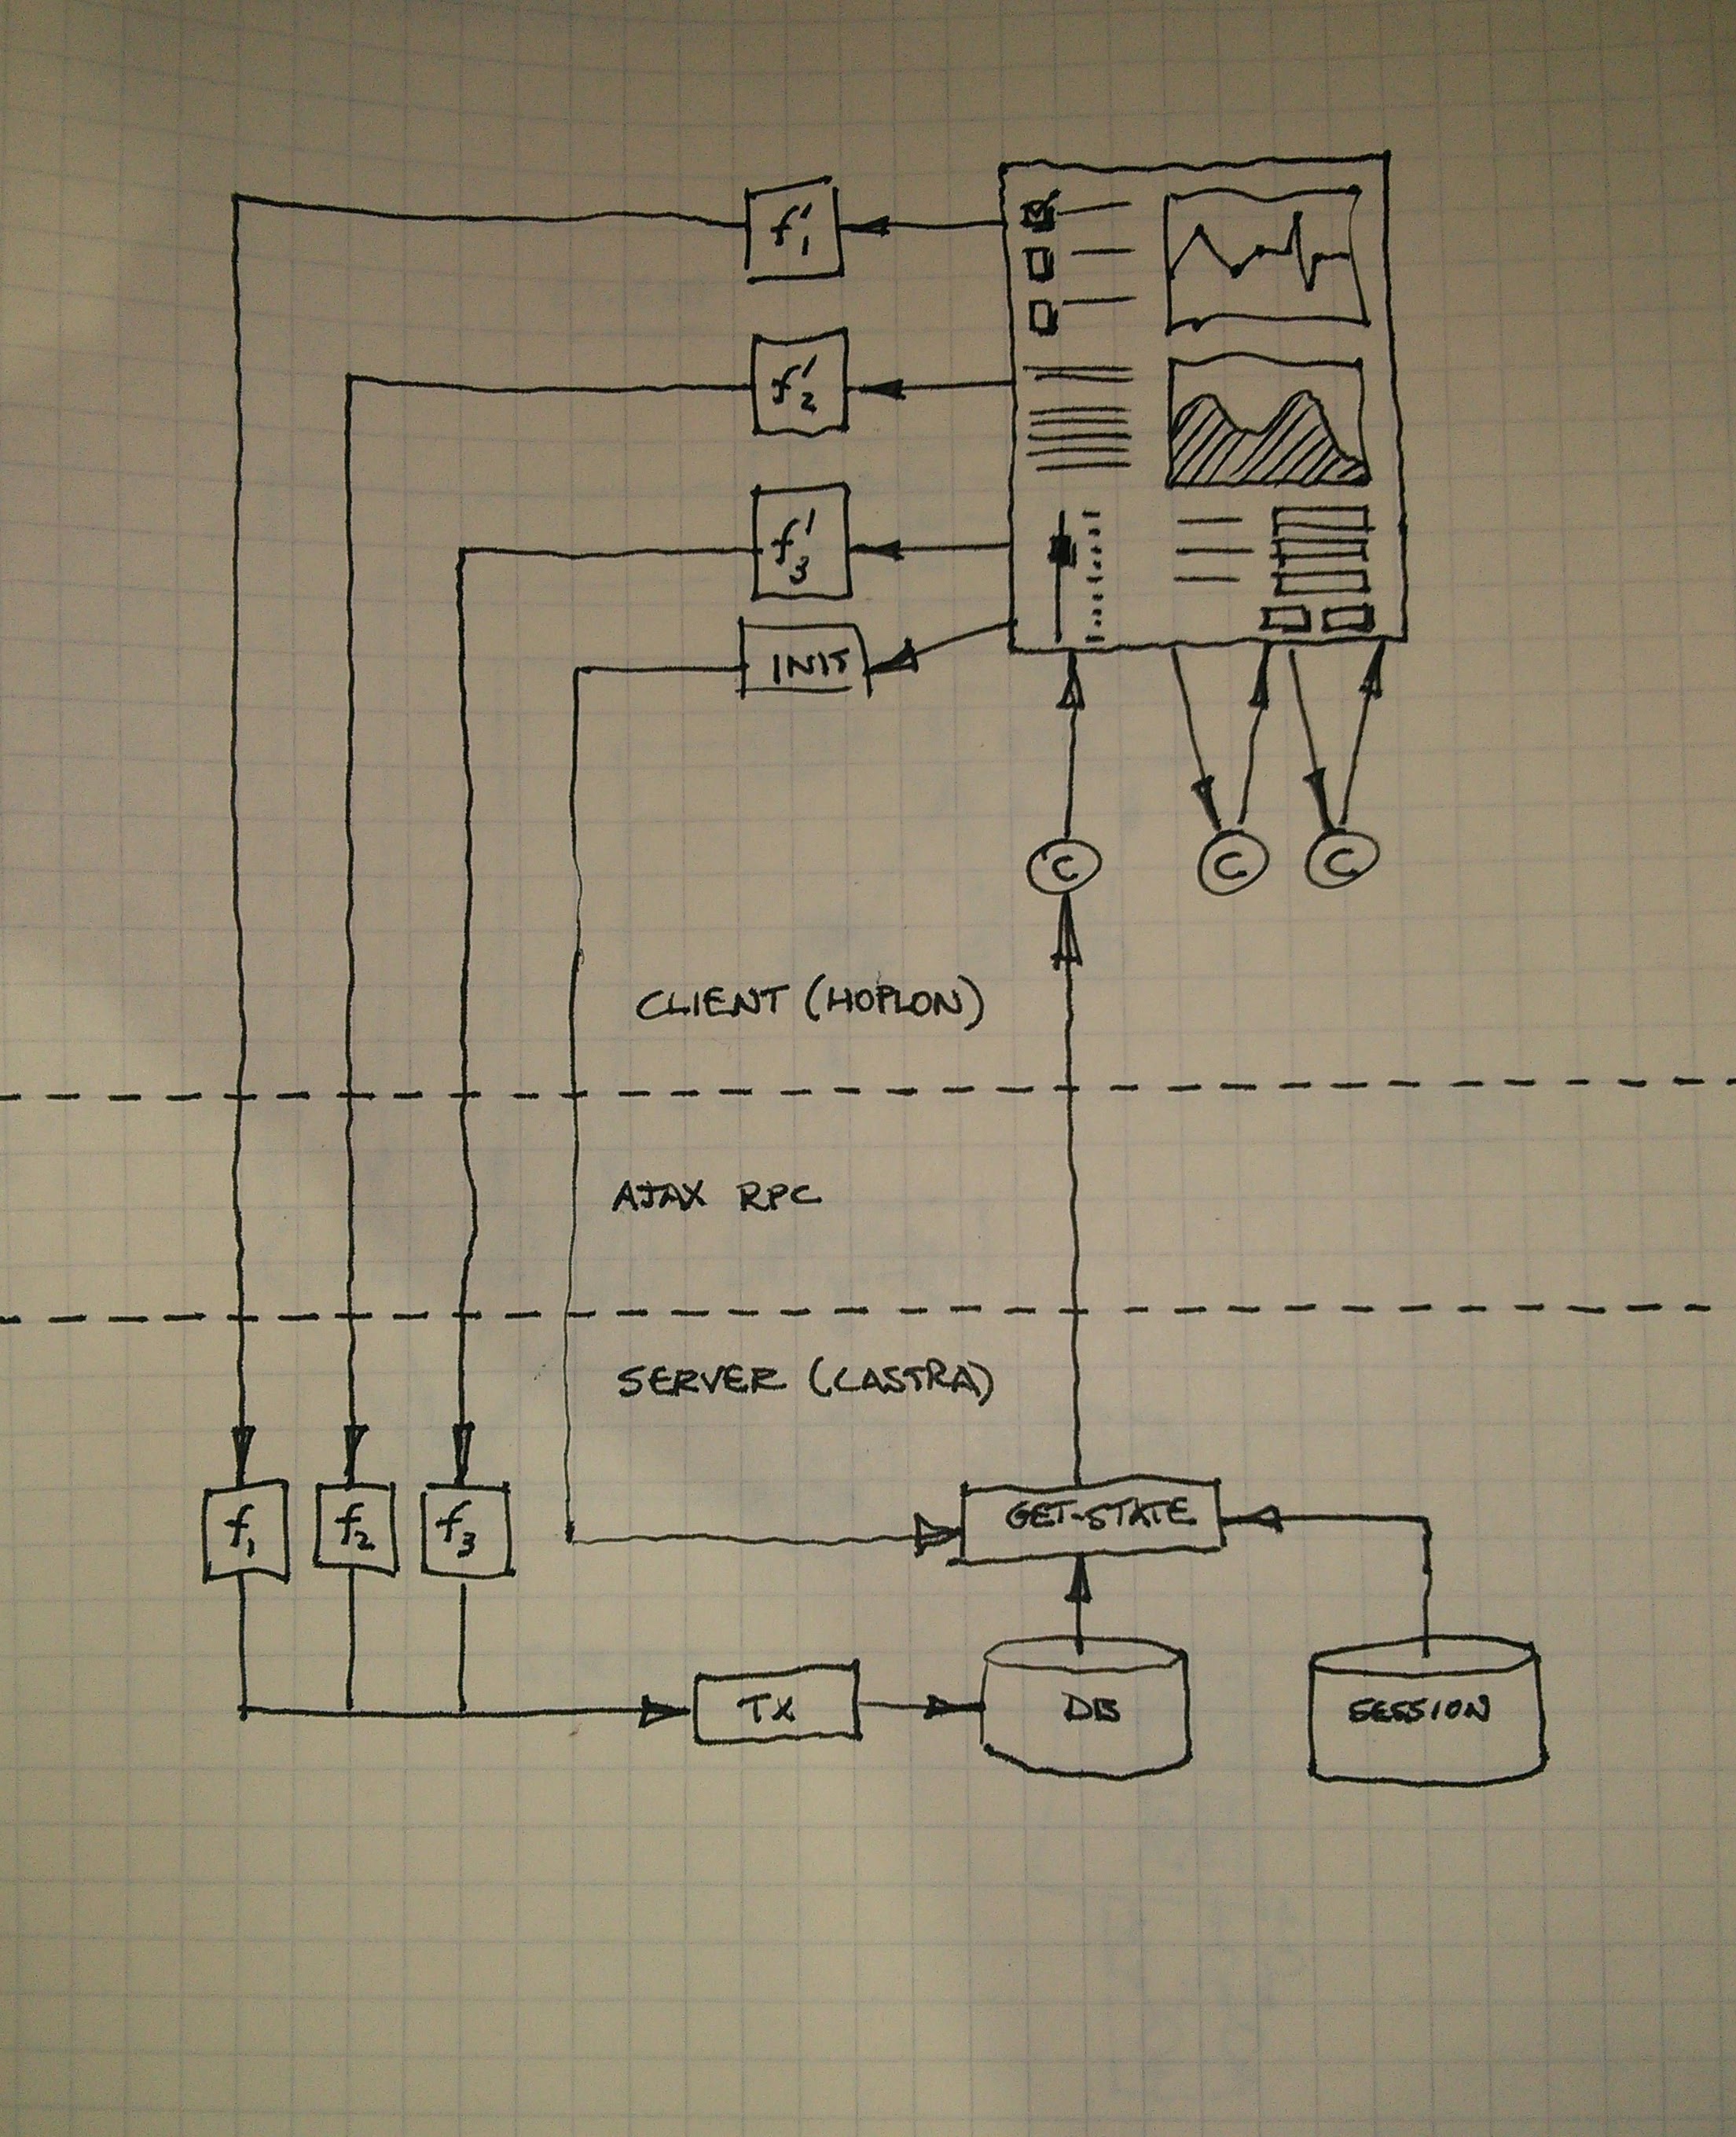 f₁'
f₂'
f₃'
INIT
C
C
C
CLIENT (HOPLON)
AJAX RPC
SERVER (CASTRA)
f₁
f₂
f₃
GET-STATE
TX
DB
SESSION